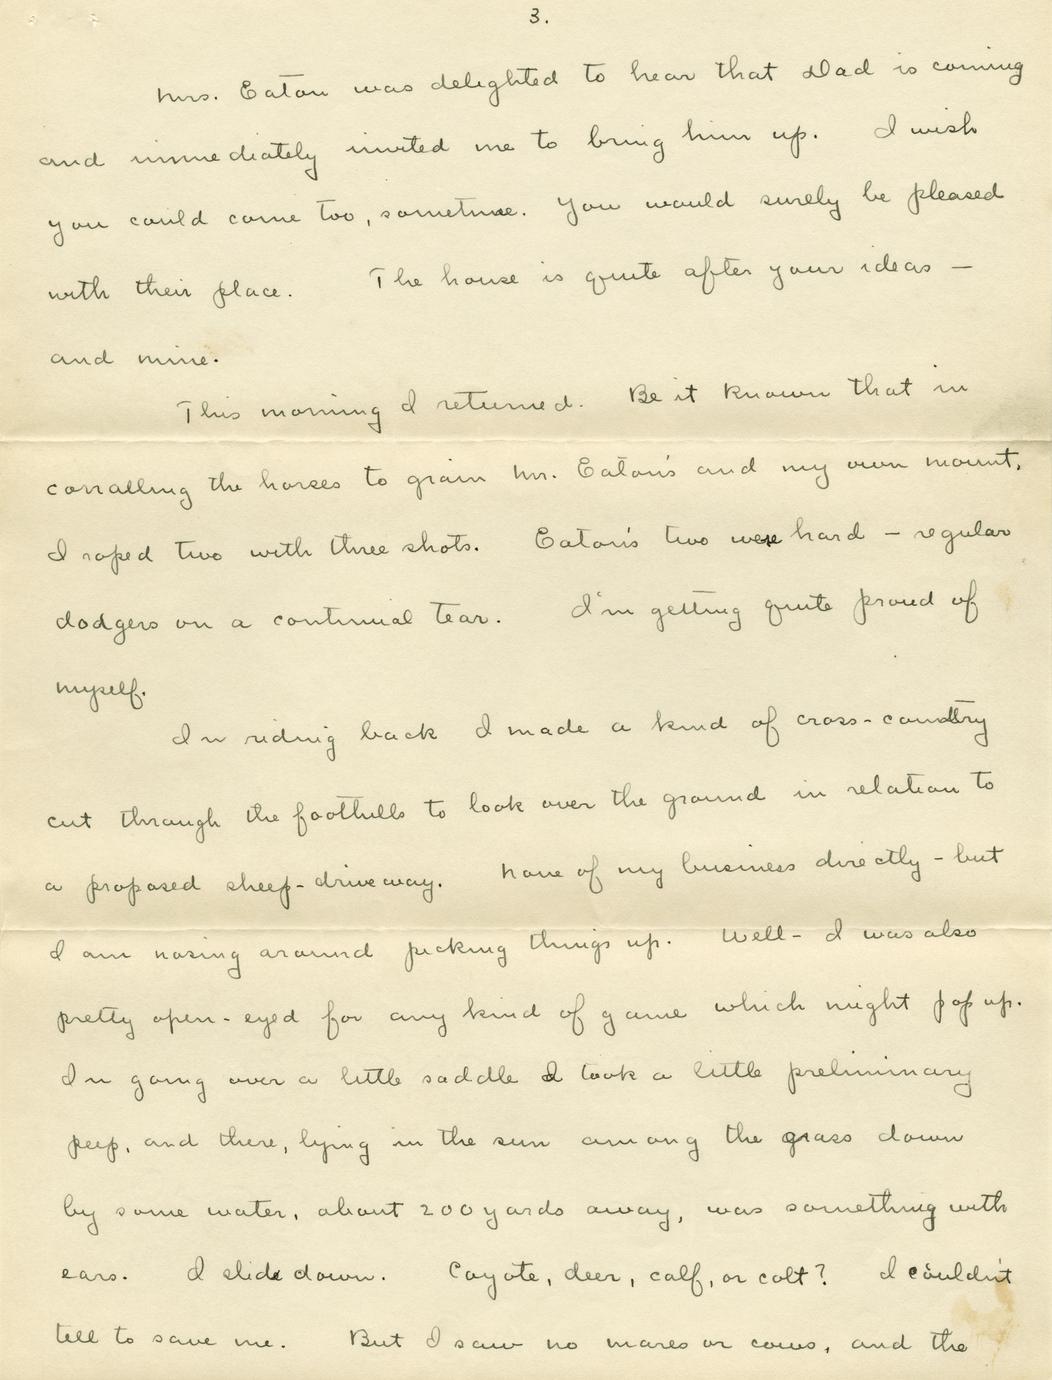 3.
Mrs. Eaton was delighted to hear that Dad is coming
and immediately invited me to bring him up. I wish
you could come too, sometime. You would surely be pleased
with their place. The house is quite after your ideas —
and mine.
This morning I returned. Be it known that in
corralling the horses to grain Mr. Eaton's and my own mount,
I roped two with three shots. Eaton's two were hard — regular
dodgers on a continual tear. I'm getting quite proud of
myself.
In riding back I made a kind of cross-country
cut through the foothills to look over the ground in relation to
a proposed sheep-driveway. None of my business directly - but
I am nosing around picking things up. Well - I was also
pretty open-eyed for any kind of game which might pop up.
In going over a little saddle I took a little preliminary
peep, and there, lying in the sun among the grass down
by some water, about 200 yards away, was something with
ears. I slid down. Coyote, deer, calf, or colt? I couldn't
tell to save me. But I saw no mares or cows, and the